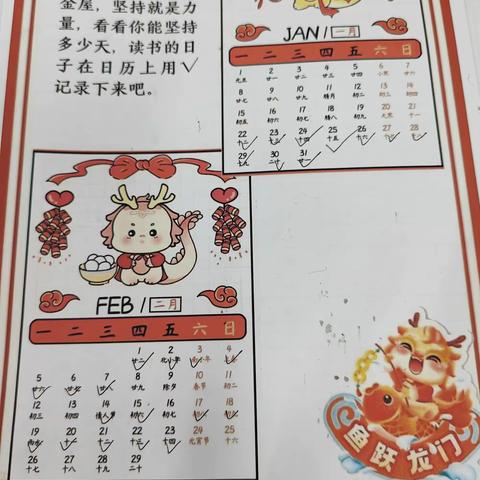 金屋，坚持就是力
量，看看你能坚持
多少天，读书的日
子在日历上用√
记录下来吧。
JAN / 一月
一 二 三 四 五 六 日
1 2 3 4 5 6 7
元旦 廿一 廿二 廿三 廿四 小寒 廿六
8 9 10 11 12 13 14
廿七 廿八 廿九 腊月 初二 初三 初四
15 16 17 18 19 20 21
初五 初六 初七 腊八 初九 大寒 十一
22 23 24 25 26 27 28
十二 十三 十四 十五 十六 十七
29 30 31
十九 二十 廿一
FEB / 二月
一 二 三 四 五 六 日
1 2 3 4
廿二 北小年
5 6 7 8 9 10 11
廿六 廿七 廿八 廿九 除夕 春节 初二
12 13 14 15 16 17 18
初三 初四 情人节 初六 初七 初八 初九
19 20 21 22 23 24 25
雨水 十一 十二 十三 十四 元宵节 十六
26 27 28 29
十七 十八 十九 二十
鱼跃龙门